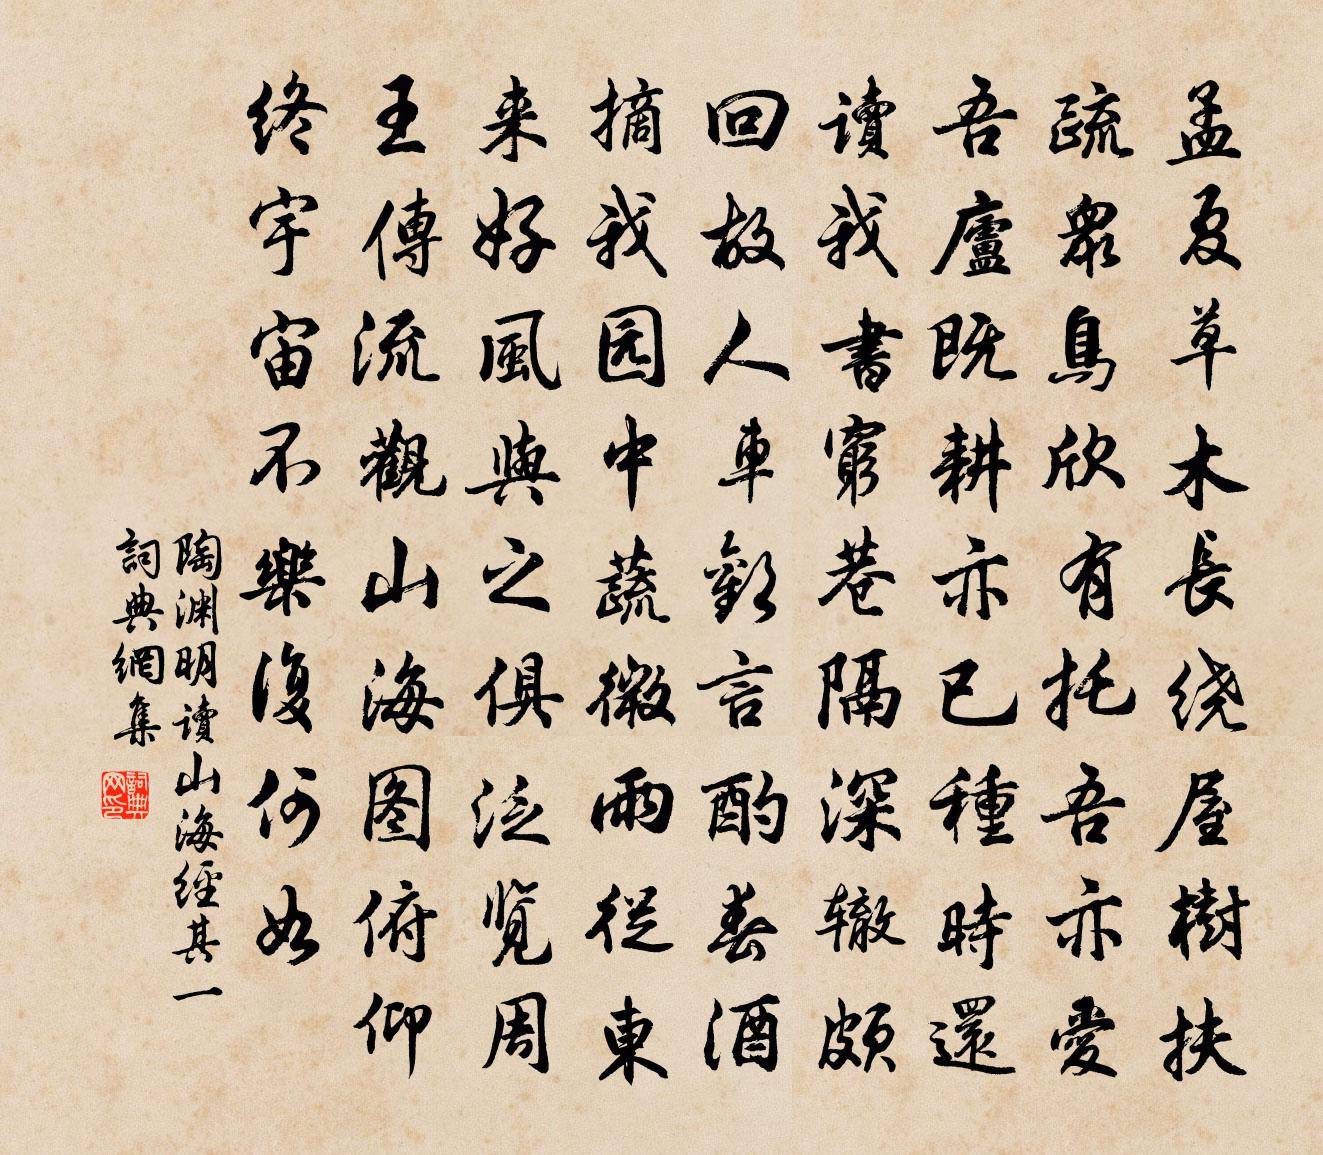 孟夏草木長绕屋樹扶
疏眾鳥欣有托吾亦愛
吾廬既耕亦已種時還
讀我書窮巷隔深辙頗
回故人車歡言酌春酒
摘我园中蔬微雨從東
来好風與之俱泛览周
王傳流觀山海图俯仰
终宇宙不樂復何如
陶渊明讀山海經其一
詞典網集
詞典网印